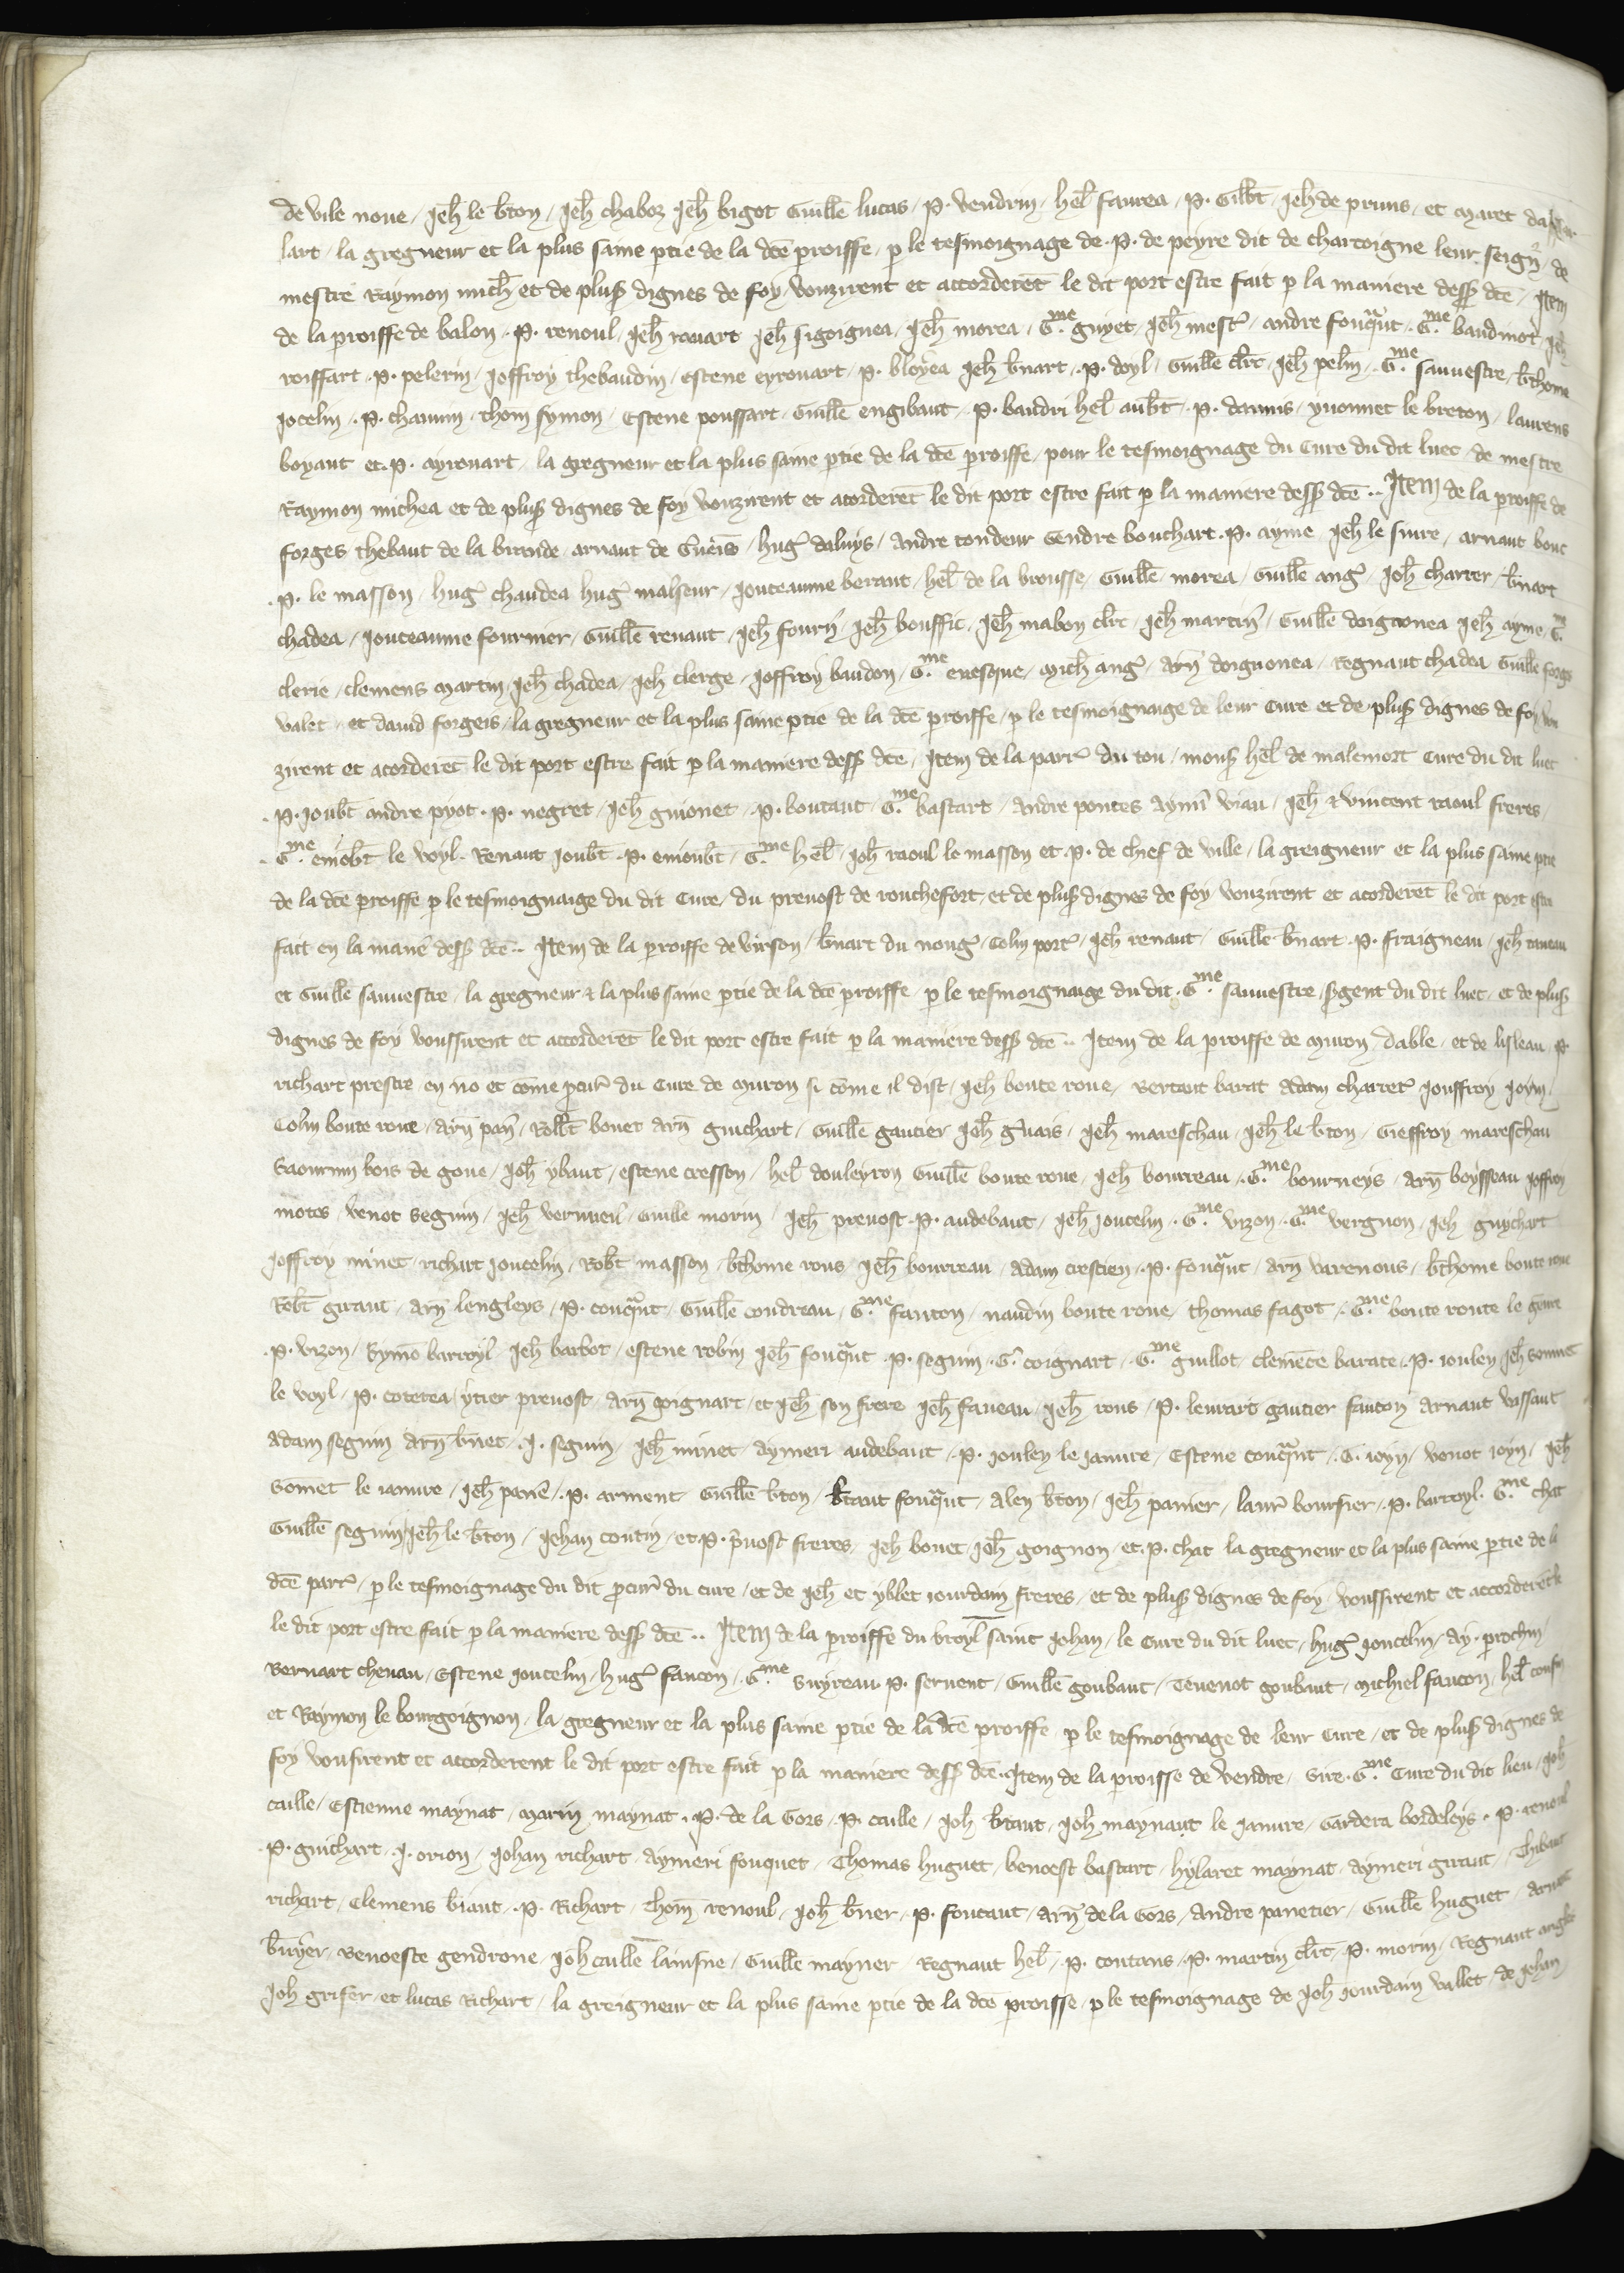 de vile noue / Jeh̄ le b̄ton / Jeh̄ chaboz Jeh̄ bigot Guill̄e lucas / P. vendrin / hel̄ faurea / P. Gilb̄t / Jeh̄ de pruns / et maret
lart / la gregneur et la plus saine p̄tie de la dc̄e p̄roisse / p̄ le tesmoignage de .P. de peyre dit de chartoigne leur seign̄r / de
mestre Raymon mich̄ et de plus̄ dignes de foy / vouzirent et accorderēt le dit port estre fait p̄ la maniere dess̄ dc̄e / Item
de la p̄roisse de balon . P. renoul / Jeh̄ rouart Jeh̄ sigoignea / Jeh̄ morea / G.me guyet / Jeh̄ mest̄ / andre fouq̄ut . G.me baudinot / Jeh̄
roissart . P. pelerin / Joffroy thebaudin / estene eyrouart / P. bloyea Jeh̄ b̄nart . P. doyl / Guill̄e cl̄rc / Jeh̄ pel̄in . G.me sauuestre / b̄thome
Jocelin . P. chauuin / thom symon / Estene poussart / Guill̄e engibaut . P. baudri hel̄ aub̄t . P. daunis / yuonnet le breton / laurens
boyaut et .P. ayrouart / la gregneur et la plus saine p̄tie de la dc̄e p̄roisse / pour le tesmoignage du Cure du dit luec / de mestre
Raymon michea et de plus̄ dignes de foy vouzirent et acorderēt le dit port estre fait p̄ la maniere dess̄ dc̄e .. Item de la p̄roisse de
forges thebaut de la birande / arnaut de / huḡ daluys / Andre tondeur Gendre bouchart . P. ayme / Jeh̄ le suire / arnaut bouc
.P. le masson / huḡ chaudea huḡ malseur / Jouteaume beraut / hel̄ de la brousse / Guill̄e morea / Guill̄e anḡ / Joh̄ charrer / b̄nart
chadea / Jouteaume fournier / Guill̄e renaut / Jeh̄ fourn̄ / Jeh̄ bouffic / Jeh̄ mabon cl̄rc / Jeh̄ martin̄ / Guill̄e doignonea Jeh̄ ayme / G.
clerie / clemens martin / Jeh̄ chadea / Jeh̄ clerge / Joffroy baudon / G.me euesque / mich̄ anḡ / arn̄ doignonea / Regnaut chadea Guill̄e forges
valet / et dauid forgeis / la gregneur et la plus saine p̄tie de la dc̄e p̄roisse / p̄ le tesmoignaige de leur Cure et de plus̄ dignes de foy / vou
zirent et acorderēt le dit port estre fait p̄ la maniere dess̄ dc̄e / Item de la parr̄ du tou / mons̄ hel̄ de malemort Cure du dit luec
.P. joub̄t andre pyot . P. negret / Jeh̄ guionet . P. boutaut / G.me bastart / andre pontes aymī viau / Jeh̄ ⁊ vincent raoul freres /
G.me emob̄t le voyl / Renaut Joub̄t . P. emoub̄t / G.me hel̄ / Joh̄ raoul le masson et .P. de chief de ville / la greigneur et la plus saine p̄tie
de la dc̄e p̄roisse p̄ le tesmoignaige du dit Cure / du preuost de rouchefort / et de plus̄ dignes de foy vouzirent et acorderēt le dit port estre
fait en la man̄e dess̄ dc̄e .. Item de la p̄roisse de virson / b̄nart du nouḡ / Colin port̄ / Jeh̄ renaut / Guill̄e b̄nart . P. fraigneau / Jeh̄
et Guill̄e sauuestre / la gregneur ⁊ la plus saine p̄tie de la dc̄e p̄roisse / p̄ le tesmoignaige du dit . G.me sauuestre / s̄gent du dit luec / et de plus̄
dignes de foy voussirent et accorderēt le dit port estre fait p̄ la maniere dess̄ dc̄e .. Item de la p̄roisse de muron / dable / et de lisleau / P.
richart prestre / en nō et cōme p̄cur̄ du Cure de muron si cōme il dist / Jeh̄ boute roue / Bertaut barat Adam charret̄ Jouffroy Joyn /
Colin boute roue / arn̄ pan̄ / Rob̄t bouet arn̄ guichart / Guill̄e gautier Joh̄ ḡuais / Jeh̄ mareschau / Jeh̄ le b̄ton / Gieffroy mareschau
Saournin bois de goue / Joh̄ ybaut / estene cresson / hel̄ douleyron Guill̄e boute roue / Jeh̄ bourreau . G.me bourneys / arn̄ boysseau Joffroy
motes / venot seguin / Jeh̄ verrueil̄ / Guill̄e morin / Jeh̄ preuost . P. audebaut / Jeh̄ Joucelin . G.me vizon . G.me vergnon / Jeh guychart
Joffroy minet / richart Joucelin / Rob̄t masson / b̄thome rous / Jeh̄ bourreau / Adam crestien . P. fouq̄ut / arn̄ varenous / b̄thome boute roue
Rob̄t giraut / arn̄ lengleys / P. couq̄ut / Guill̄e coudreau / G.me fauton / naudin boute roue / thomas fagot / G.me boute route le
.P. vizon / Symō barroyl Jeh̄ barbot / estene robin Jeh̄ fouq̄ut . P. seguin . G. coignart / G.me guillot / clemēce barate . P. iouley / Jeh̄
le voyl / P. coterea / ytier preuost / arn̄ goignart / et Jeh̄ son frere Jeh̄ faueau / Jeh̄ rous / P. leurart gautier fauton arnaut vissaut
Adam seguin arn̄ b̄net . J. seguin / Jeh̄ minet / aymeri audebaut . P. jouley le jaunre / Estene couq̄ut . G. ioyn / venot ioyn / Jeh̄
Somet le iaunre / Jeh̄ pane . P. arment / Guill̄e b̄ton / b̄taut fouq̄ut / Aleu b̄ton / Jeh̄ panier / laur̄ boursier . P. barroyl . G.me chat
Guill̄e seguin / Jeh̄ le b̄ton / Jehan contin / et .P. p̄uost freres / Jeh bouet / Jeh̄ goignon / et .P. chat la gregneur et la plus saine p̄tie de la
dc̄e parr̄ / p̄ le tesmoignage du dit p̄cur̄ du cure / et de Jeh̄ et yblet iourdain freres / et de plus̄ dignes de foy / voussirent et accorderēt le
le dit port estre fait p̄ la maniere dess̄ dc̄e .. Item de la p̄roisse du broyl̄ saint Johan / le Cure du dit luec / huḡ Joucelin / ay.
Bernart cheuau / Estene Joucelin / huḡ faucon / G.me Suyreau . P. seruent / Guill̄e goubaut / Teuenot goubaut / michiel faucon / hel̄
et Raymon le bourgoignon / la gregneur et la plus saine p̄tie de la dc̄e p̄roisse p̄ le tesmoignage de leur Cure / et de plus̄ dignes de
foy vousirent et accorderent le dit port estre fait p̄ la maniere dess̄ dc̄e . Item de la p̄roisse de Vendre / Sire . G.me Cure du dit lieu / Joh̄
caille / Estienne maynat / marin maynat . P. de la Gors . P. caille / Joh b̄taut / Joh̄ maynaut le jaunre / Gardera bordeleys . P. renoul
.P. guichart . J. orion / Johan richart / Aymeri fouquet / Thomas huguet / benoest bastart / hylaret maynat / aymeri giraut / Thibaut
richart / Clemens biaut . P. Richart / thom̄ renoul / Joh̄ b̄ner . P. foucaut / arn̄ de la Gors / Andre panetier / Guill̄e huguet /
b̄nyer / Benoeste gendrone / Joh̄ caille lainsne / Guill̄e mayner Regnaut hel̄ / P. contans . P. martin cl̄rc . P. morin / Regnaut
Joh grifer / et lucas Richart / la greigneur et la plus saine p̄tie de la dc̄e p̄roisse / p̄ le tesmoignage de Joh̄ jourdain vallet / de Jehan